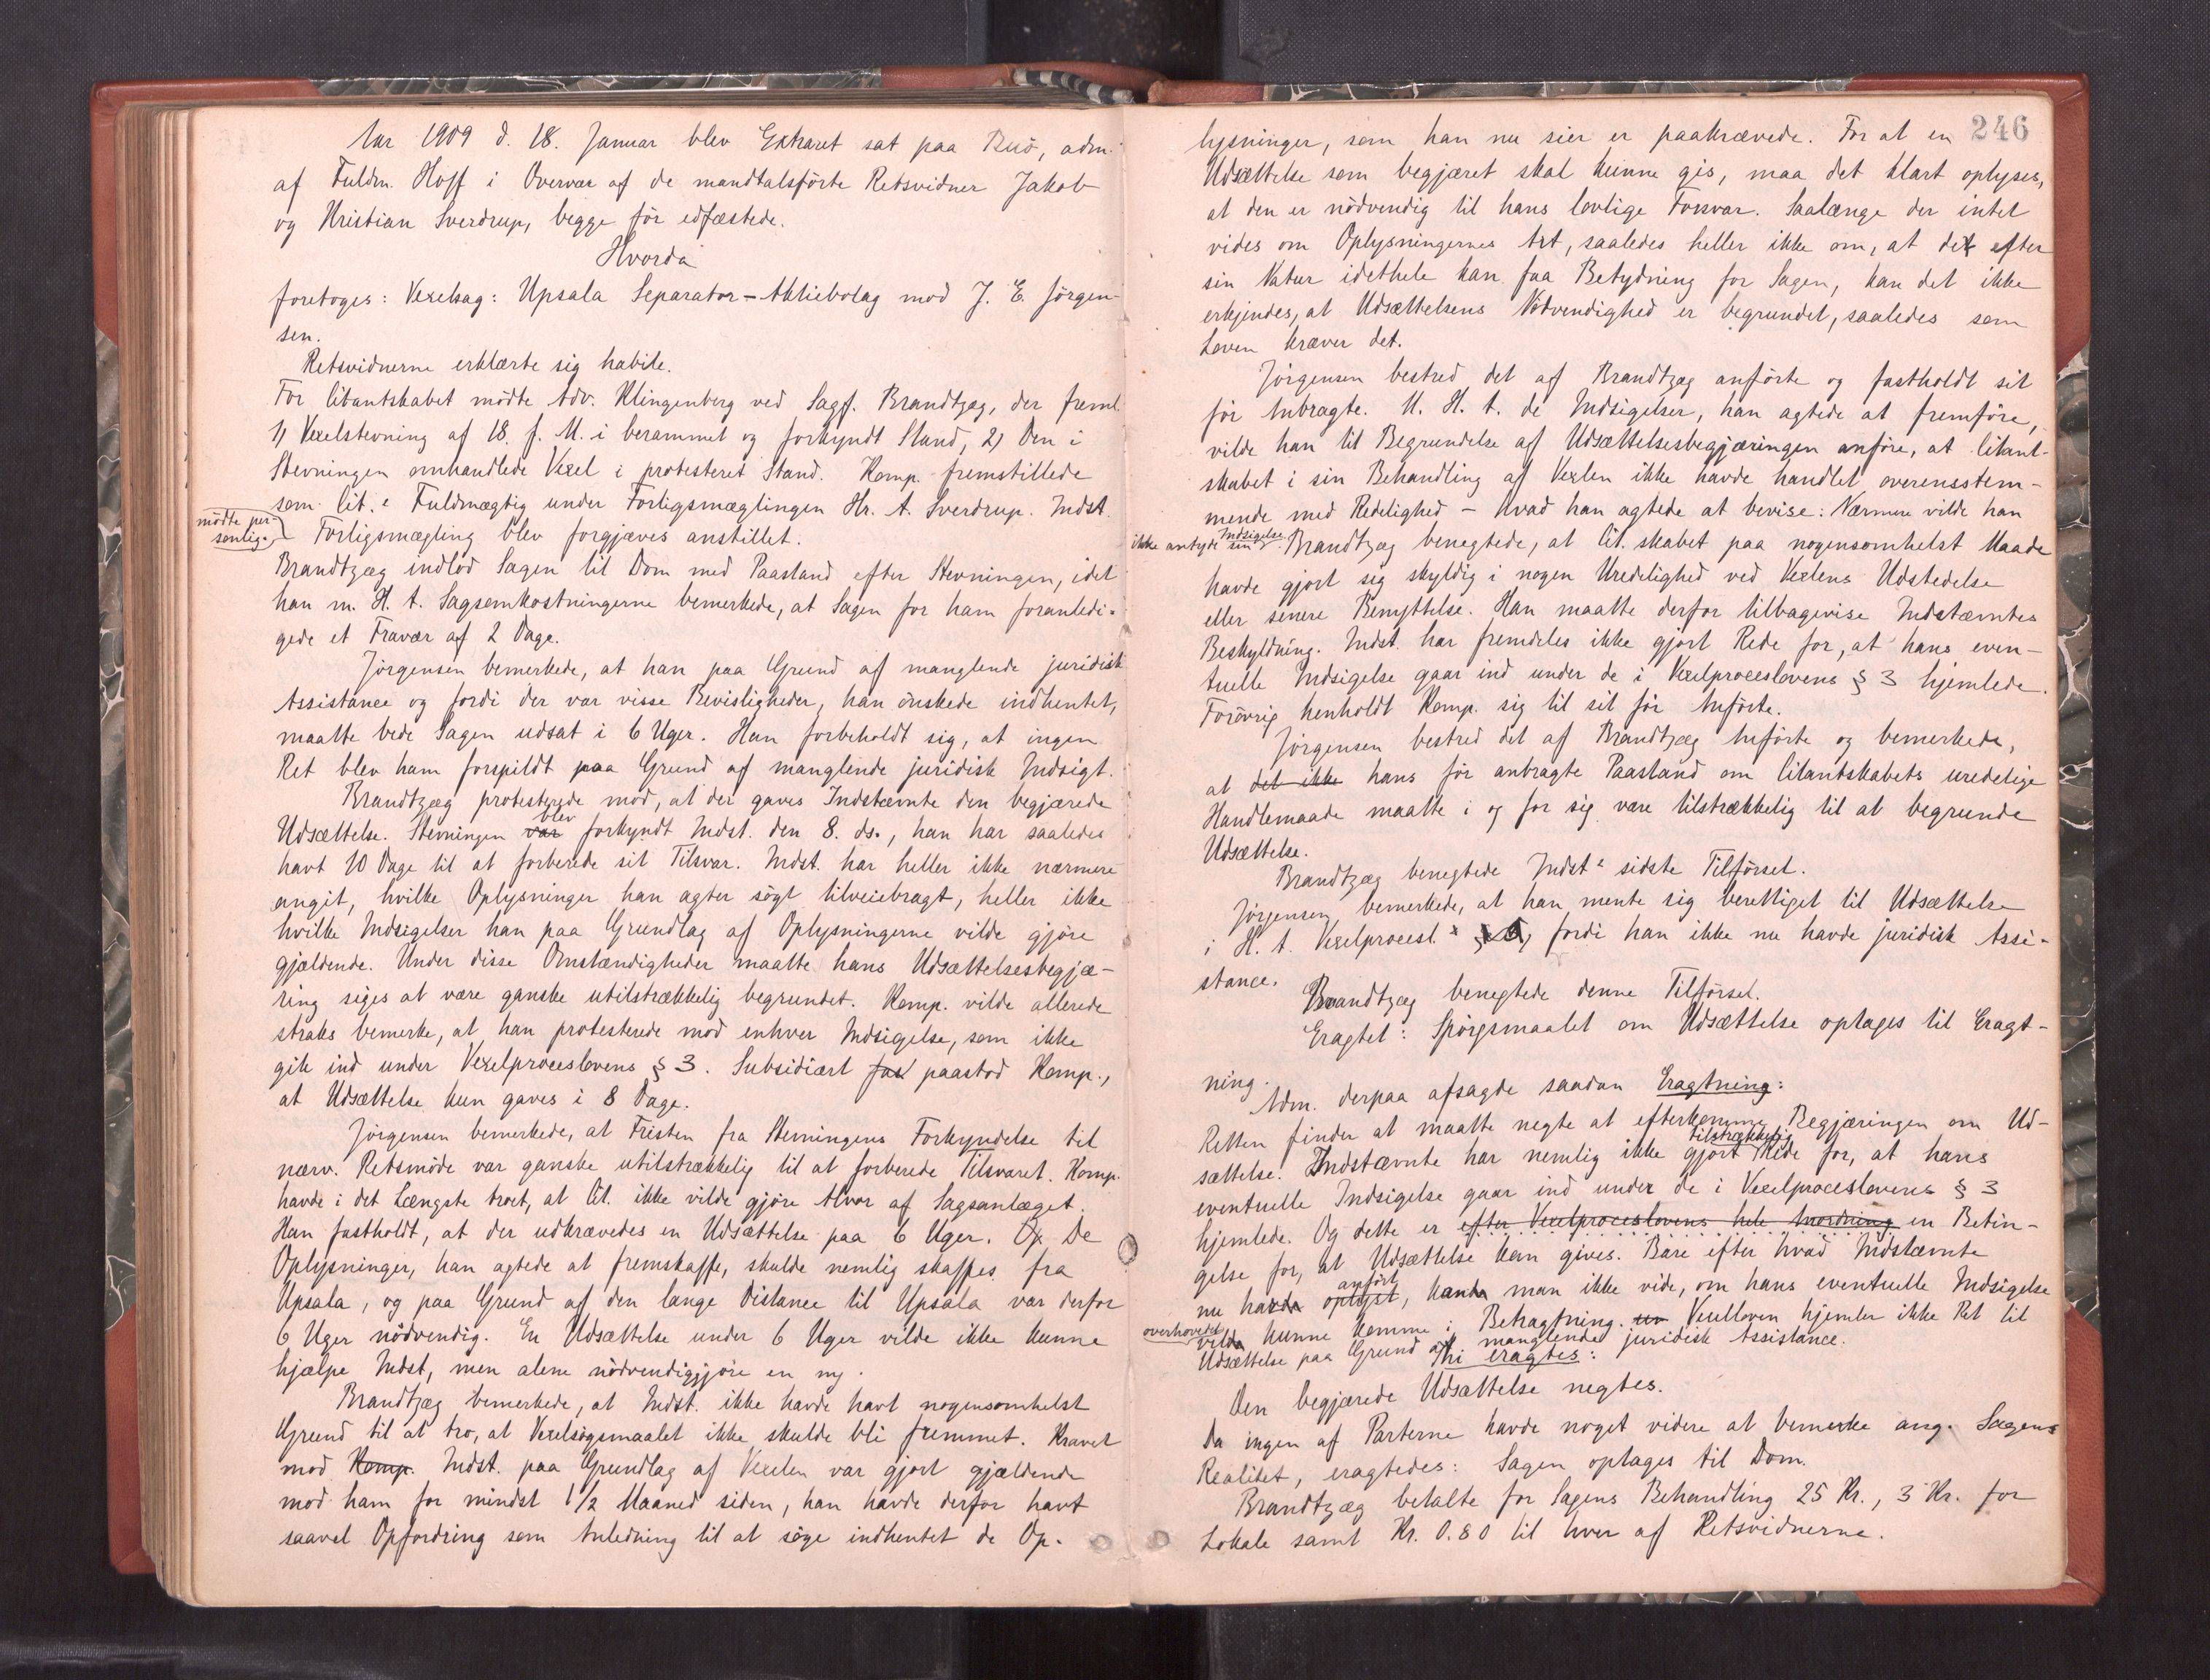 Aar 1909 d. 18. Januar blev Extraret sat paa Buö, adm.
af Fuldm. Hoff i Overvær af de mandtalsförte Retsvidner Jakob
og Kristian Sverdrup, begge för edfæstede.
Hvorda
foretoges: Vexelsag: Upsala Separator-Aktiebolag mod J. E. Jörgen-
sen.
Retsvidnerne erklærte sig habile.
For Citantskabet mödte Adv. Klingenberg ved Sagf. Brandtzæg, der freml.
1) Vexelstevning af 18. f. M. i berammet og forkyndt Stand, 2) Den i
Stevningen omhandlede Vexel i protesteret Stand. Komp. fremstillede
som Cit.s Fuldmægtig under Forligsmæglingen Hr. A. Sverdrup. Indst.
mödte per-
sonlig.
Forligsmægling blev forgjæves anstillet.
Brandtzæg indlod Sagen til Dom med Paastand efter Stevningen, idet
han m. H. t. Sagsomkostningerne bemerkede, at Sagen for ham foranledi-
gede et Fravær af 2 Dage.
Jörgensen bemerkede, at han paa Grund af manglende juridisk
Assistance og fordi der var visse Bevisligheder, han önskede indhentet,
maatte bede Sagen udsat i 6 Uger. Han forbeholdt sig, at ingen
Ret blev ham forspildt paa Grund af manglende juridisk Indsigt.
Brandtzæg protesterede mod, at der gaves Indstævnte den begjærede
Udsættelse. Stevningen var blev forkyndt Indst. den 8. ds., han har saaledes
havt 10 Dage til at forberede sit Tilsvar. Indst. har heller ikke nærmere
angit, hvilke Oplysninger han agter sögt tilveiebragt, heller ikke
hvilke Indsigelser han paa Grundlag af Oplysningerne vilde gjöre
gjældende. Under disse Omstændigheder maatte hans Udsættelsesbegjæ-
ring siges at være ganske utilstrækkelig begrundet. Komp. vilde allerede
straks bemerke, at han protesterede mod enhver Indsigelse, som ikke
gik ind under Vexelproceslovens § 3. Subsidiært paastod Komp.,
at Udsættelse kun gaves i 8 Dage.
Jörgensen bemerkede, at Fristen fra Stevningens Forkyndelse til
nærv. Retsmöde var ganske utilstrækkelig til at forberede Tilsvaret. Komp.
havde i det Længste troet, at Cit. ikke vilde gjöre Alvor af Sagsanlæget.
Han fastholdt, at der udkrævedes en Udsættelse paa 6 Uger. Op De
Oplysninger, han agtede at fremskaffe, skulde nemlig skaffes fra
Upsala, og paa Grund af den lange Distance til Upsala var derfor
6 Uger nödvendig. En Udsættelse under 6 Uger vilde ikke kunne
hjælpe Indst, men alene nödvendiggjöre en ny.
Brandtzæg bemerkede, at Indst. ikke havde havt nogensomhelst
Grund til at tro, at Vexelsögsmaalet ikke skulde bli fremmet. Kravet
mod Komp. Indst. paa Grundlag af Vexelen var gjort gjældende
mod ham for mindst 1 1/2 Maaned siden, han havde derfor havt
saavel Opfordring som Anledning til at söge indhentet de Op-
246
lysninger, som han nu sier er paakrævede. For at en
Udsættelse som begjæret skal kunne gis, maa det klart oplyses,
at den er nödvendig til hans lovlige Forsvar. Saalænge der intet
vides om Oplysningernes Art, saaledes heller ikke om, at det efter
sin Natur idethele kan faa Betydning for Sagen, kan det ikke
erkjendes, at Udsættelsens Nödvendighed er begrundet, saaledes som
Loven kræver det.
Jörgensen bestred det af Brandtzæg anförte og fastholdt sit
för Anbragte. M. H. t. de Indsigelser, han agtede at fremföre,
vilde han til Begrundelse af Udsættelsesbegjæringen anföre, at Citant-
skabet i sin Behandling af Vexlen ikke havde handlet overensstem-
mende med Redelighed - hvad han agtede at bevise: Nærmere vilde han
ikke antyde sin Indsigelse. Brandtzæg benegtede, at Cit.skabet paa nogensomhelst Maade
havde gjort sig skyldig i nogen Uredelighed ved Vexlens Udstedelse
eller senere Benyttelse. Han maatte derfor tilbagevise Indstævntes
Beskyldning. Indst. har fremdeles ikke gjort Rede for, at hans even-
tuelle Indsigelse gaar ind under de i Vexelproceslovens § 3 hjemlede.
Forövrig henholdt Komp. sig til sit för Anförte.
Jörgensen bestred det af Brandtzæg Anförte og bemerkede,
at det ikke hans för anbragte Paastand om Citantskabets uredelige
Handlemaade maatte i og for sig være tilstrækkelig til at begrunde
Udsættelse.
Brandtzæg benegtede Indst.s sidste Tilförsel.
Jörgensen bemerkede, at han mente sig berettiget til Udsættelse
i H. t. Vexelprocesl.s § 6, fordi han ikke nu havde juridisk Assi-
stance.
Brandtzæg benegtede denne Tilförsel.
Eragtet: Spörgsmaalet om Udsættelse optages til Eragt-
ning.
Adm. derpaa afsagde saadan Eragtning:
Retten finder at maatte negte at efterkomme Begjæringen om Ud-
sættelse. Indstævnte har nemlig ikke gjort tilstrækkelig Rede for, at hans
eventuelle Indsigelse gaar ind under de i Vexelproceslovens § 3
hjemlede. Og dette er efter Vexelproceslovens hele Anordning en Betin-
gelse for, at Udsættelse kan gives. Bare efter hvad Indstævnte
nu havde oplyst anfört, kande man ikke vide, om hans eventuelle Indsigelse
overhovedet vilde kunne komme i Betragtning. Vexelloven hjemler ikke Ret til
Udsættelse paa Grund af manglende juridisk Assistance.
Thi eragtes:
Den begjærede Udsættelse negtes.
Da ingen af Parterne havde noget videre at bemerke ang. Sagens
Realitet, eragtedes: Sagen optages til Dom.
Brandtzæg betalte for Sagens Behandling 25 Kr., 3 Kr. for
Lokale samt Kr. 0.80 til hver af Retsvidnerne.